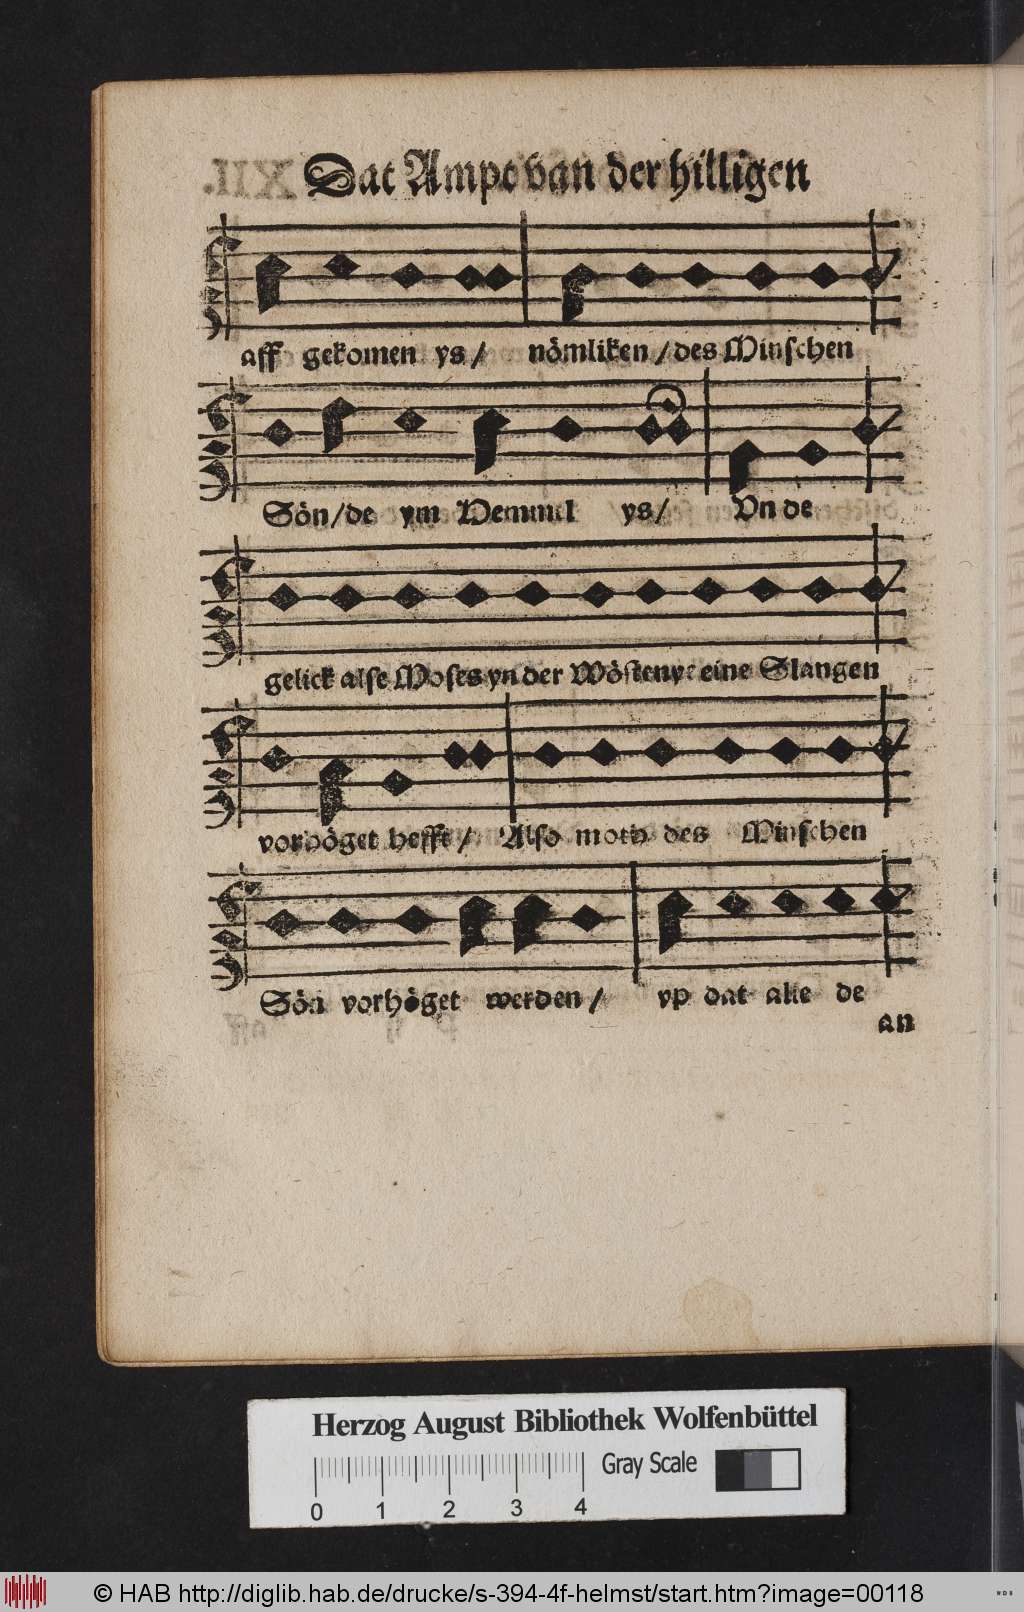 Dat Ampt van der hilligen
aff gekomen ys / nömliken / des Minschen
Sön / de ym Hemmel ys / Vn de
gelick alse Moses yn der Wöstenye eine Slangen
vorhöget hefft / Also moth des Minschen
Sön vorhöget werden / vp dat alle de
an
Herzog August Bibliothek Wolfenbüttel
Gray Scale
0 1 2 3 4
© HAB http://diglib.hab.de/drucke/s-394-4f-helmst/start.htm?image=00118